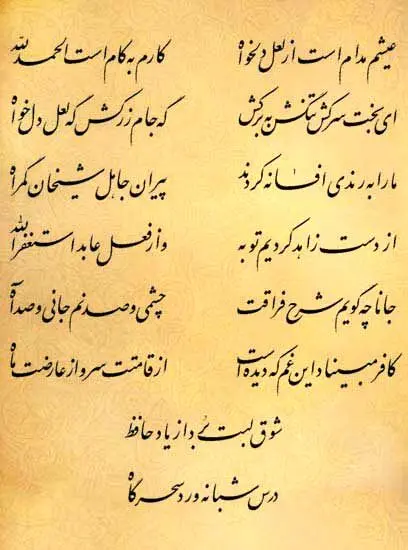 عیشم مدام است از لعل دلخواه کارم به کام است الحمدلله
ای بخت سرکش تنگش به بر کش گه جام زر کش گه لعل دل خواه
ما را به رندی افسانه کردند پیران جاهل شیخان گمراه
از دست زاهد کردیم توبه و از فعل عابد استغفرالله
جانا چه گویم شرح فراقت چشمی و صد نم جانی و صد آه
کافر مبیناد این غم که دیده است از قامتت سرو از عارضت ماه
شوق لبت برد از یاد حافظ
درس شبانه ورد سحرگاه